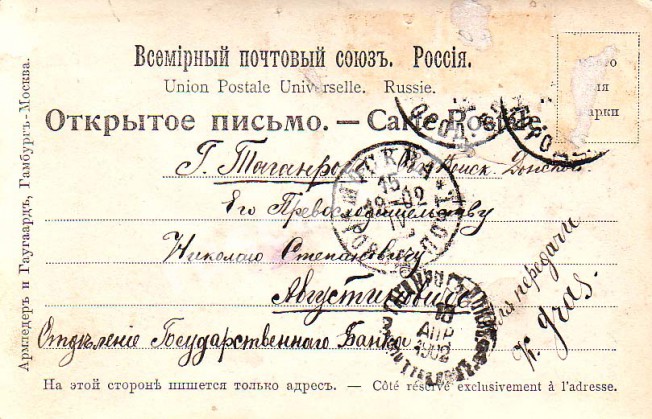 Всемірный почтовый союзъ. Россія.
Union Postale Universelle. Russie.
Открытое письмо. — Carte Postale.
Мѣсто
для
марки
Г. Таганрогъ Войск. Донск.
Его Превосходительству
Николаю Степановичу
Августиновичу
Отдѣленіе Государственного Банка
Для передачи
МОСКВА
15
02
IV
18
АПР
1902
На этой сторонѣ пишется только адресъ. — Côté réservé exclusivement à l'adresse.
Армпедеръ и Гаугаардъ, Гамбургъ-Москва.